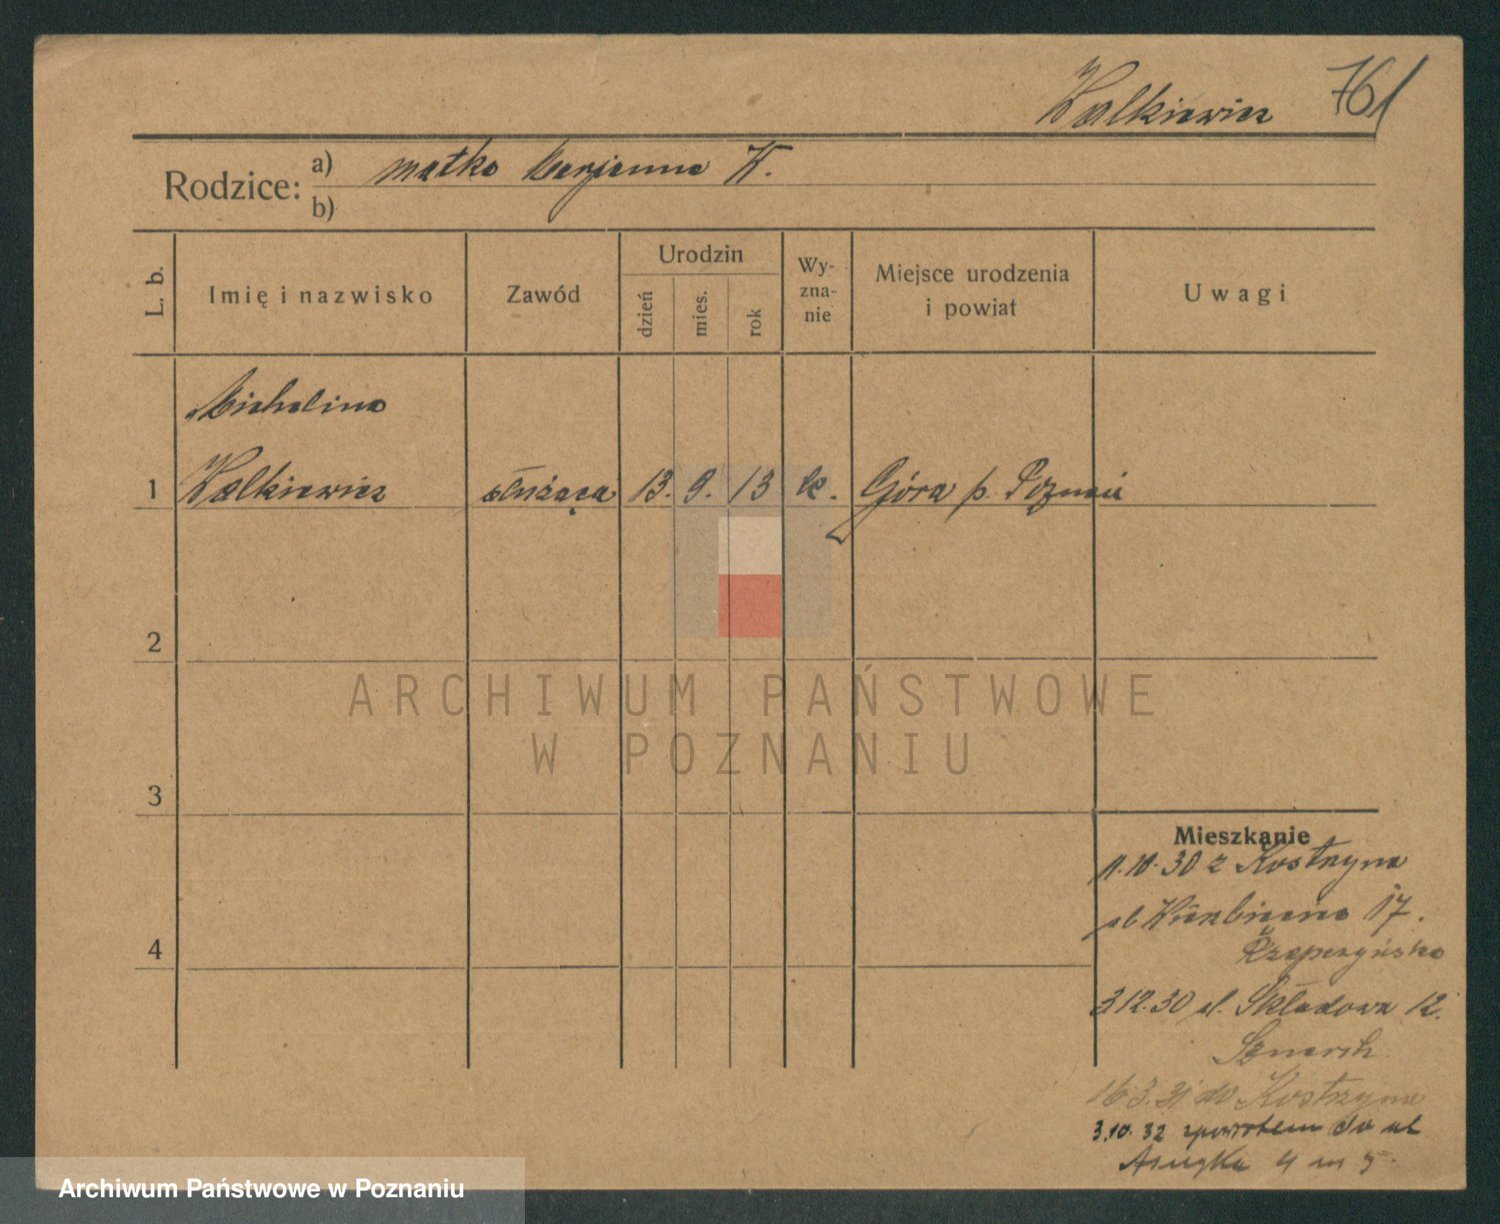 Walkiewicz 761
Rodzice: a) matka Marjanna W.
b)
L. b.
Imię i nazwisko
Zawód
Urodzin
dzień
mies.
rok
Wy-
zna-
nie
Miejsce urodzenia
i powiat
Uwagi
Michalina
1 Walkiewicz służąca 13. 9. 13 k. Góra p. Poznań
2
3
4
ARCHIWUM PAŃSTWOWE
W POZNANIU
Mieszkanie
11.10.30 z Kostrzyna
ul Wierzbięcice 17.
Rzepczyńska
3.12.30 ul. Składowa 12.
16.3.31 do Kostrzyna
3.10.32 zpowrotem do ul
4 m 5.
Archiwum Państwowe w Poznaniu